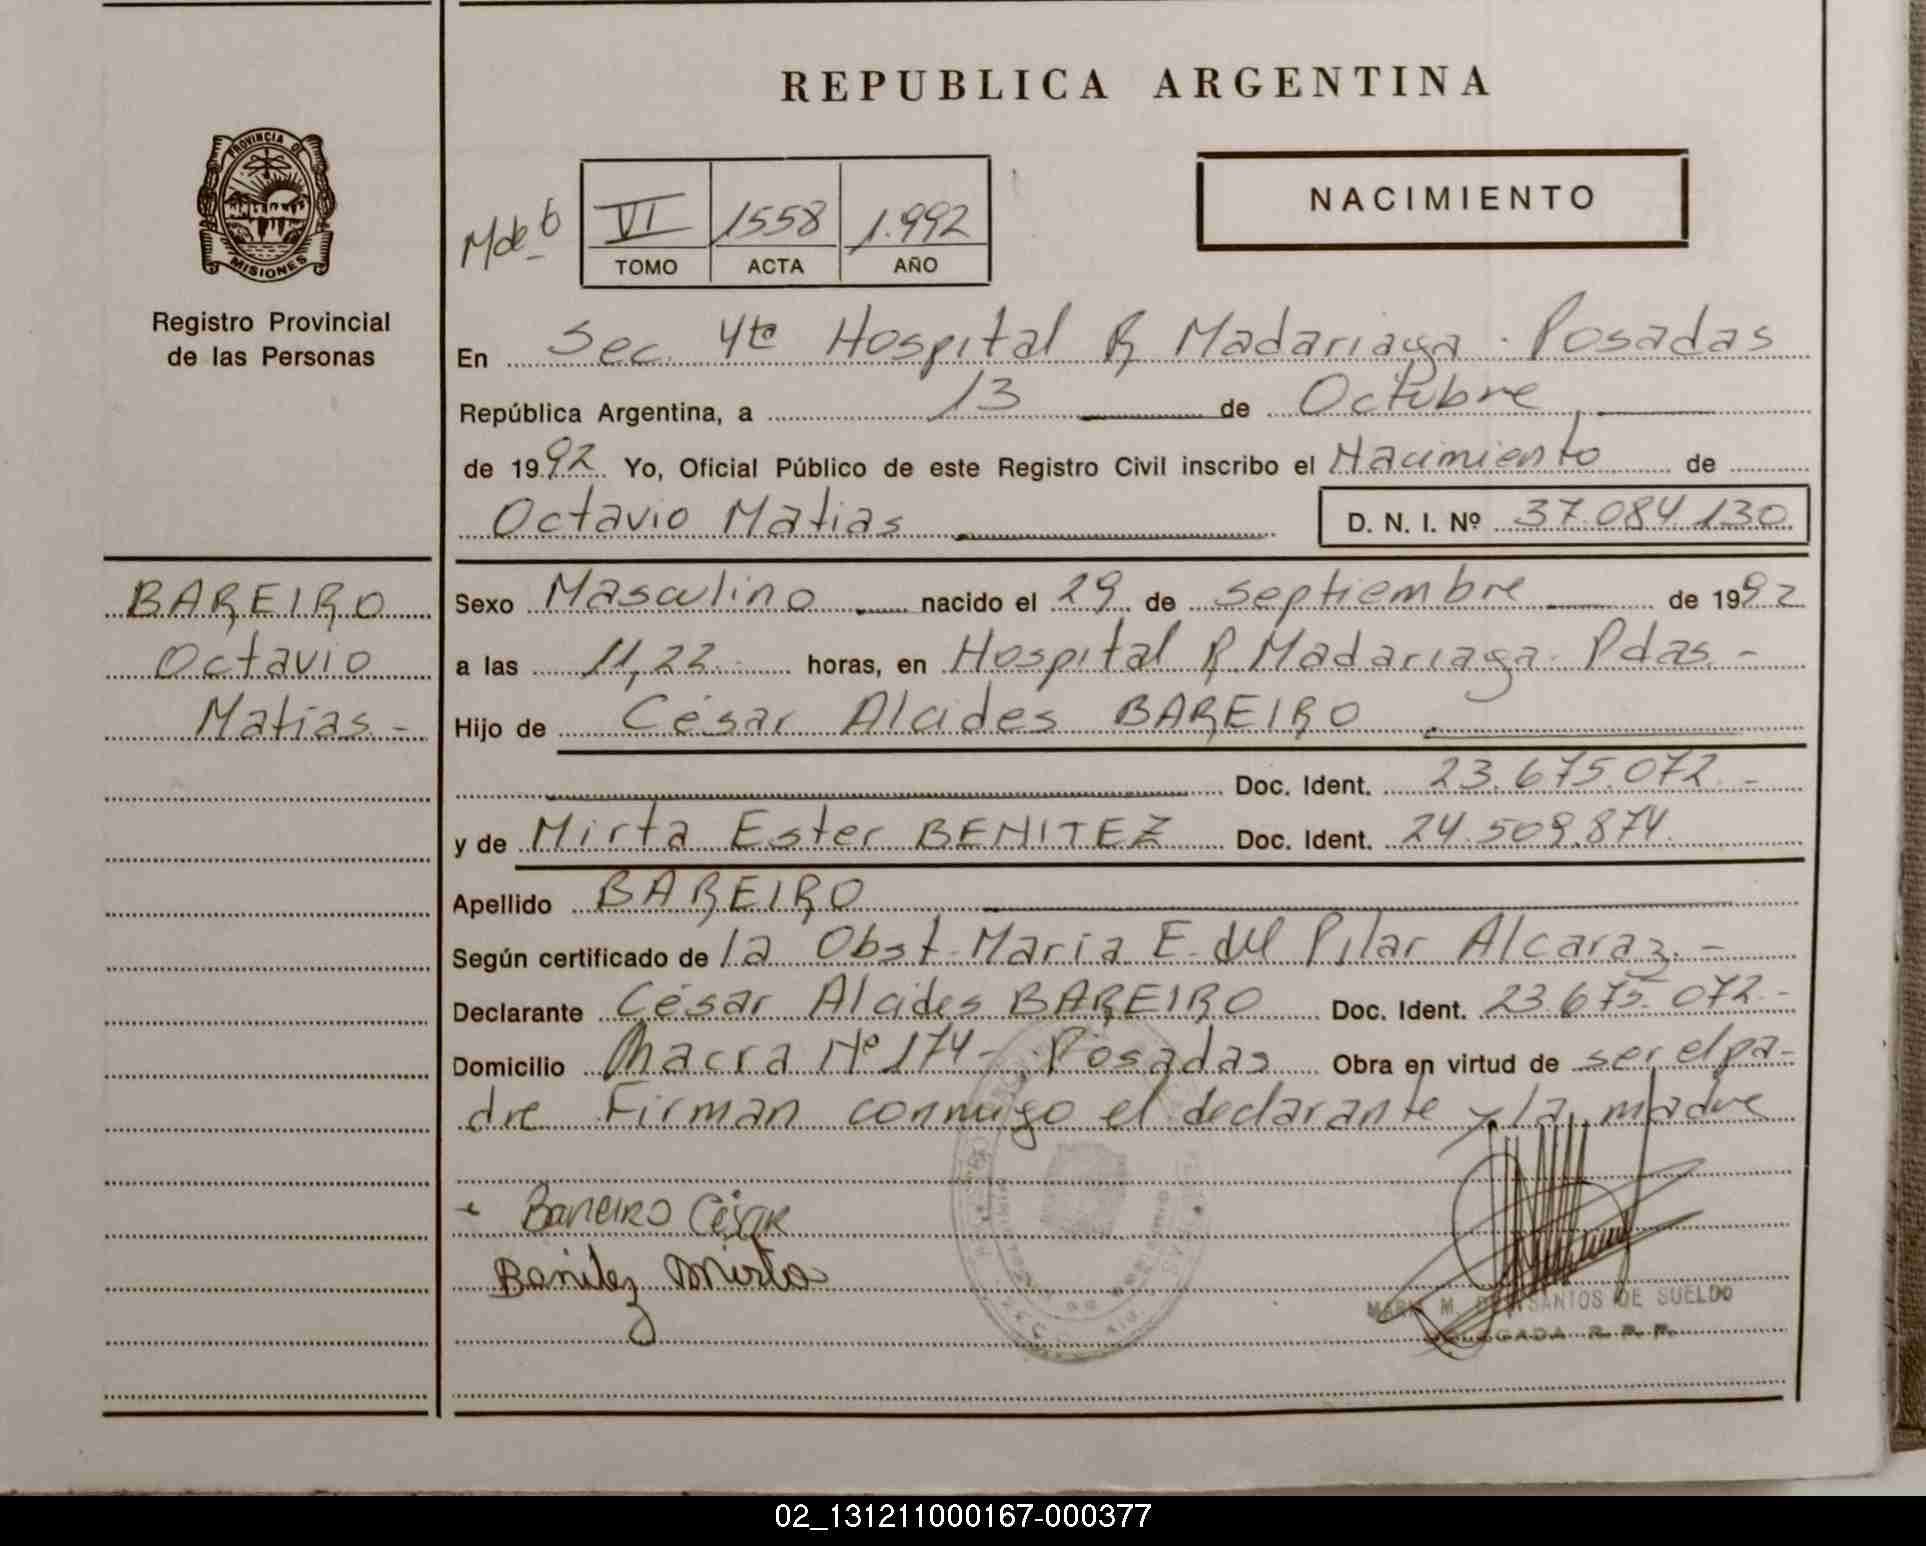 REPUBLICA ARGENTINA
PROVINCIA DE
MISIONES
Registro Provincial
de las Personas
NACIMIENTO
VI 1558 1.992
TOMO ACTA AÑO
En Sec. 4ta Hospital R Madariaga. Posadas
República Argentina, a 13 de Octubre
de 1992 Yo, Oficial Público de este Registro Civil inscribo el Nacimiento de
Octavio Matias D. N. I. Nº 37.084.130
BAREIRO
Octavio
Matias.-
Sexo Masculino nacido el 29 de septiembre de 1992
a las 11,22.- horas, en Hospital R. Madariaga. Pdas.-
Hijo de César Alcides BAREIRO
Doc. Ident. 23.675.072.-
y de Mirta Ester BENITEZ Doc. Ident. 24.509.874.
Apellido BAREIRO
Según certificado de la Obst. Maria E. del Pilar Alcaraz.-
Declarante César Alcides BAREIRO Doc. Ident. 23.675.072.-
Domicilio Chacra Nº 174- Posadas Obra en virtud de ser el pa-
dre Firman conmigo el declarante y la madre
Bareiro César
Benitez Mirta
SANTOS DE SUELDO
DELEGADA R. P. P.
02_131211000167-000377